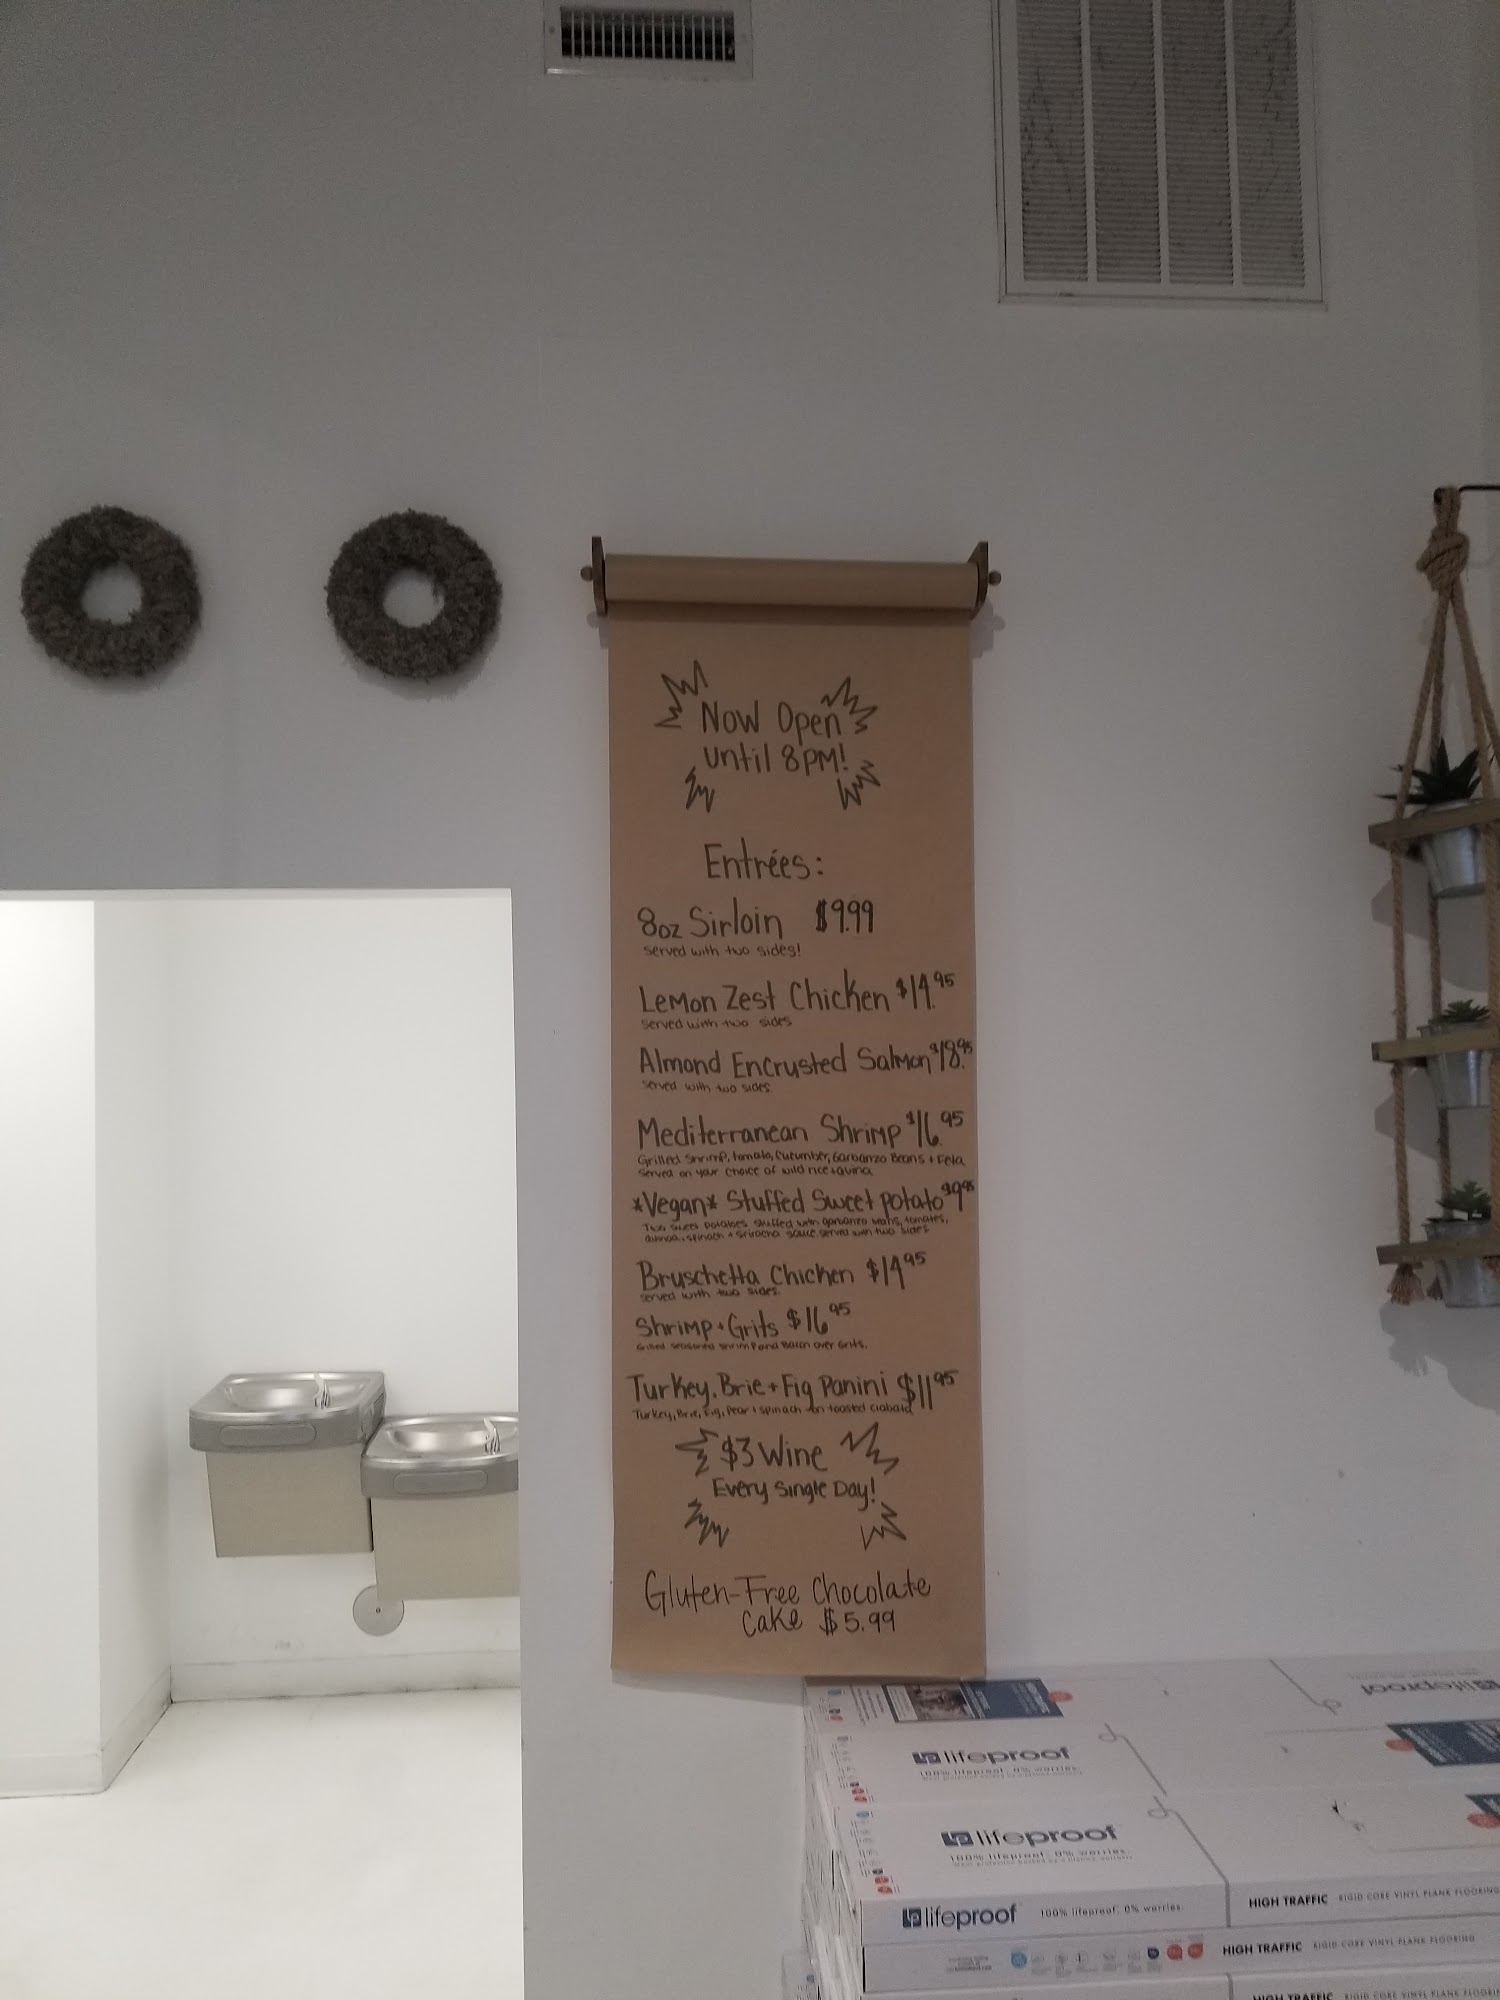 Now Open
until 8PM!
Entrées:
8oz Sirloin $9.99
served with two sides!
Lemon Zest Chicken $14.95
served with two sides
Almond Encrusted Salmon $18.95
served with two sides
Mediterranean Shrimp $16.95
Grilled shrimp, tomato, cucumber, Garbanzo Beans + Feta
served on your choice of wild rice +
*Vegan* Stuffed Sweet Potato $9.95
Two sweet potatoes stuffed with garbanzo beans, tomatoes,
spinach + sriracha sauce. served with two sides
Bruschetta Chicken $14.95
served with two sides.
Shrimp + Grits $16.95
seasoned shrimp and Bacon over Grits.
Turkey, Brie + Fig Panini $11.95
Turkey, Brie, Fig, Pear + spinach on toasted
$3 Wine
Every Single Day!
Gluten-Free Chocolate
Cake $5.99
lifeproof
lifeproof
100% lifeproof. 0% worries.
lifeproof
100% lifeproof. 0% worries.
lifeproof 100% lifeproof. 0% worries.
HIGH TRAFFIC RIGID CORE VINYL PLANK FLOORING
HIGH TRAFFIC RIGID CORE VINYL PLANK FLOORING
HIGH TRAFFIC RIGID CORE VINYL PLANK FLOORING